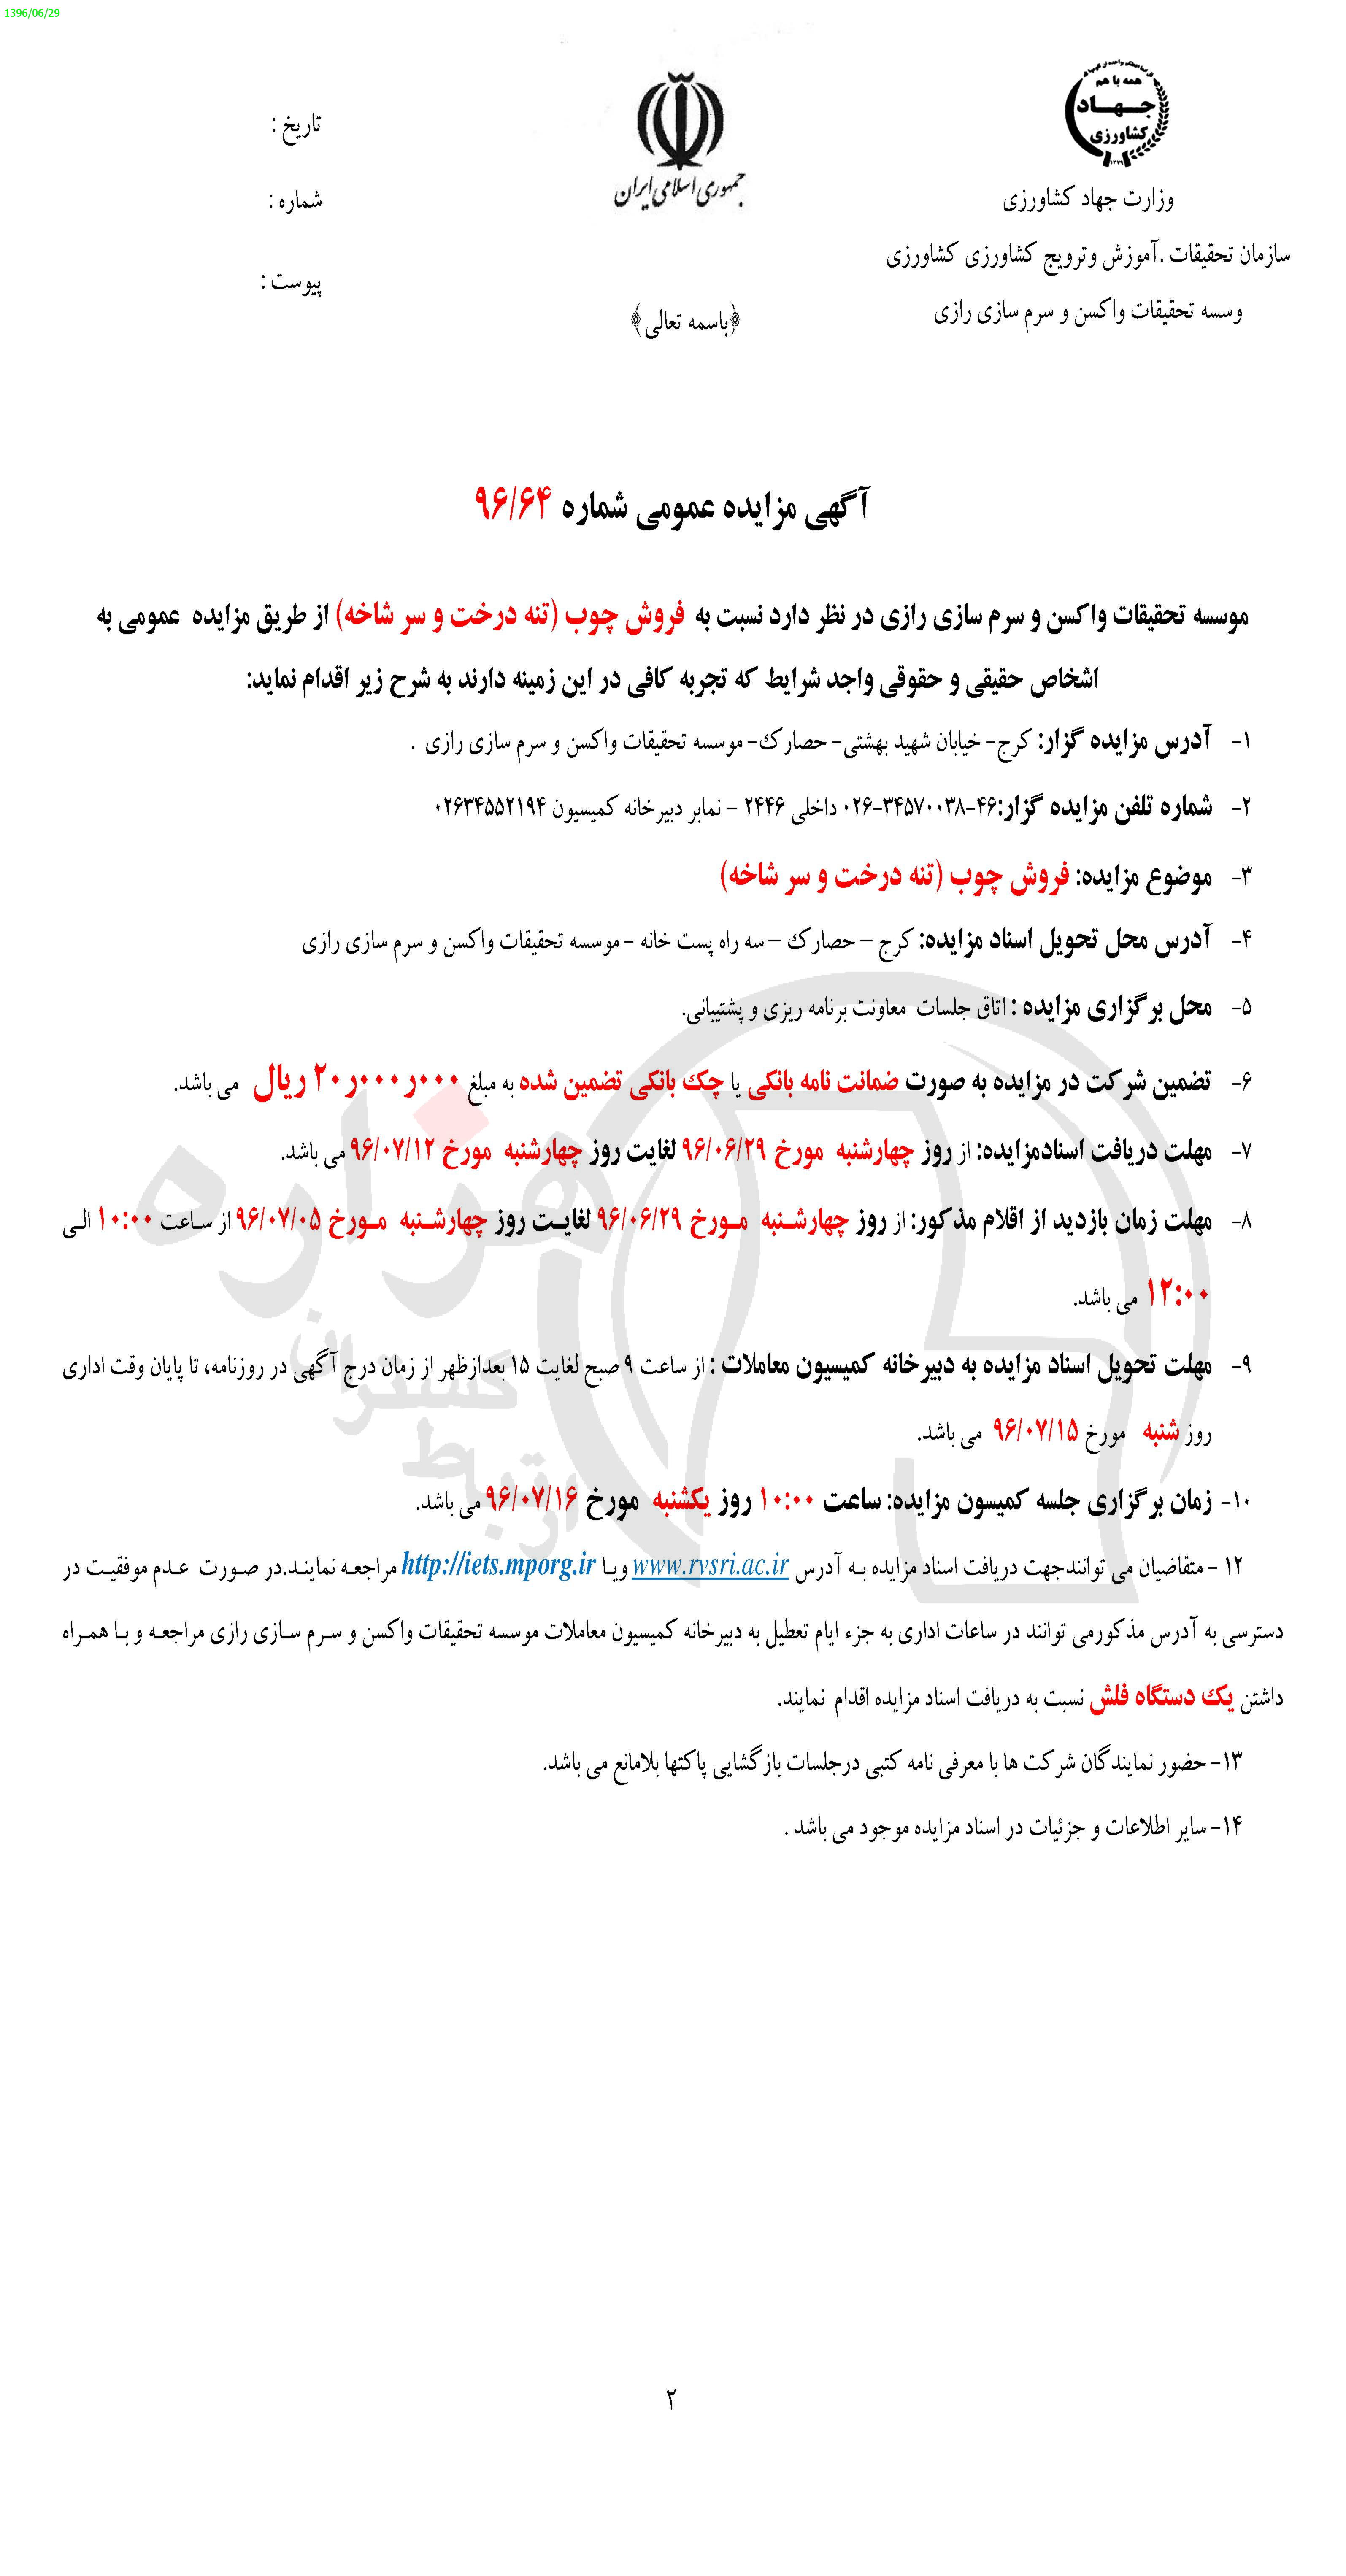 1396/06/29
همه با هم
جهاد
کشاورزی
۱۳۷۹
جمهوری اسلامی ایران
وزارت جهاد کشاورزی
سازمان تحقیقات .آموزش وترویج کشاورزی کشاورزی
وسسه تحقیقات واکسن و سرم سازی رازی
تاریخ :
شماره :
پیوست :
﴿باسمه تعالی﴾
آگهی مزایده عمومی شماره ۹۶/۶۴
موسسه تحقیقات واکسن و سرم سازی رازی در نظر دارد نسبت به فروش چوب (تنه درخت و سر شاخه) از طریق مزایده عمومی به
اشخاص حقیقی و حقوقی واجد شرایط که تجربه کافی در این زمینه دارند به شرح زیر اقدام نماید:
۱- آدرس مزایده گزار: کرج- خیابان شهید بهشتی- حصارک- موسسه تحقیقات واکسن و سرم سازی رازی .
۲- شماره تلفن مزایده گزار:۴۶-۳۴۵۷۰۰۳۸-۰۲۶ داخلی ۲۴۴۶ – نمابر دبیرخانه کمیسیون ۰۲۶۳۴۵۵۲۱۹۴
۳- موضوع مزایده: فروش چوب (تنه درخت و سر شاخه)
۴- آدرس محل تحویل اسناد مزایده: کرج – حصارک – سه راه پست خانه - موسسه تحقیقات واکسن و سرم سازی رازی
۵- محل برگزاری مزایده : اتاق جلسات معاونت برنامه ریزی و پشتیبانی.
۶- تضمین شرکت در مزایده به صورت ضمانت نامه بانکی یا چک بانکی تضمین شده به مبلغ ۲۰ر۰۰۰ر۰۰۰ ریال می باشد.
۷- مهلت دریافت اسنادمزایده: از روز چهارشنبه مورخ ۹۶/۰۶/۲۹ لغایت روز چهارشنبه مورخ ۹۶/۰۷/۱۲ می باشد.
۸- مهلت زمان بازدید از اقلام مذکور: از روز چهارشنبه مورخ ۹۶/۰۶/۲۹ لغایت روز چهارشنبه مورخ ۹۶/۰۷/۰۵ از ساعت ۱۰:۰۰ الی
۱۲:۰۰ می باشد.
۹- مهلت تحویل اسناد مزایده به دبیرخانه کمیسیون معاملات : از ساعت ۹ صبح لغایت ۱۵ بعدازظهر از زمان درج آگهی در روزنامه، تا پایان وقت اداری
روز شنبه مورخ ۹۶/۰۷/۱۵ می باشد.
۱۰- زمان برگزاری جلسه کمیسون مزایده: ساعت ۱۰:۰۰ روز یکشنبه مورخ ۹۶/۰۷/۱۶ می باشد.
۱۲ - متقاضیان می توانندجهت دریافت اسناد مزایده به آدرس www.rvsri.ac.ir ویا http://iets.mporg.ir مراجعه نمایند.در صورت عدم موفقیت در
دسترسی به آدرس مذکورمی توانند در ساعات اداری به جزء ایام تعطیل به دبیرخانه کمیسیون معاملات موسسه تحقیقات واکسن و سرم سازی رازی مراجعه و با همراه
داشتن یک دستگاه فلش نسبت به دریافت اسناد مزایده اقدام نمایند.
۱۳- حضور نمایندگان شرکت ها با معرفی نامه کتبی درجلسات بازگشایی پاکتها بلامانع می باشد.
۱۴- سایر اطلاعات و جزئیات در اسناد مزایده موجود می باشد .
هزاره
گستران
ارتباط
۲